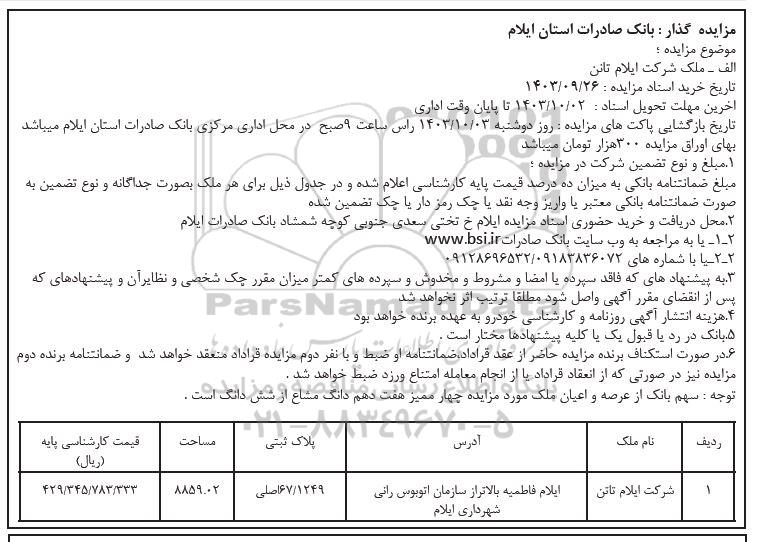 مزایده گذار : بانک صادرات استان ایلام
موضوع مزایده ؛
الف ـ ملک شرکت ایلام تانن
تاریخ خرید اسناد مزایده : ۱۴۰۳/۰۹/۲۶
اخرین مهلت تحویل اسناد : ۱۴۰۳/۱۰/۰۲ تا پایان وقت اداری
تاریخ بازگشایی پاکت های مزایده : روز دوشنبه ۱۴۰۳/۱۰/۰۳ راس ساعت ۹صبح در محل اداری مرکزی بانک صادرات استان ایلام میباشد
بهای اوراق مزایده ۳۰۰هزار تومان میباشد
۱.مبلغ و نوع تضمین شرکت در مزایده ؛
مبلغ ضمانتنامه بانکی به میزان ده درصد قیمت پایه کارشناسی اعلام شده و در جدول ذیل برای هر ملک بصورت جداگانه و نوع تضمین به
صورت ضمانتنامه بانکی معتبر یا واریز وجه نقد یا چک رمز دار یا چک تضمین شده
۲.محل دریافت و خرید حضوری اسناد مزایده ایلام خ تختی سعدی جنوبی کوچه شمشاد بانک صادرات ایلام
۲ـ۱ـ یا به مراجعه به وب سایت بانک صادرات www.bsi.ir
۲ـ۲ـیا با شماره های ۰۹۱۲۸۶۹۶۵۳۲/۰۹۱۸۳۸۳۶۰۷۲
۳.به پیشنهاد های که فاقد سپرده یا امضا و مشروط و مخدوش و سپرده های کمتر میزان مقرر چک شخصی و نظایرآن و پیشنهادهای که
پس از انقضای مقرر آگهی واصل شود مطلقا ترتیب اثر نخواهد شد
۴.هزینه انتشار آگهی روزنامه و کارشناسی خودرو به عهده برنده خواهد بود
۵.بانک در رد یا قبول یک یا کلیه پیشنهادها مختار است .
۶.در صورت استنکاف برنده مزایده حاضر از عقد قراداد.ضمانتنامه او ضبط و با نفر دوم مزایده قراداد منعقد خواهد شد و ضمانتنامه برنده دوم
مزایده نیز در صورتی که از انعقاد قراداد یا از انجام معامله امتناع ورزد ضبط خواهد شد .
توجه : سهم بانک از عرصه و اعیان ملک مورد مزایده چهار ممیز هفت دهم دانگ مشاع از شش دانگ است .
ردیف نام ملک آدرس پلاک ثبتی مساحت قیمت کارشناسی پایه
(ریال)
۱ شرکت ایلام تانن ایلام فاطمیه بالاتراز سازمان اتوبوس رانی ۶۷/۱۲۴۹اصلی ۸۸۵۹.۰۲ ۴۲۹/۳۴۵/۷۸۳/۳۳۳
شهرداری ایلام
ParsNamadData
۰۲۱-۸۸۳۴۹۶۷۰-۵